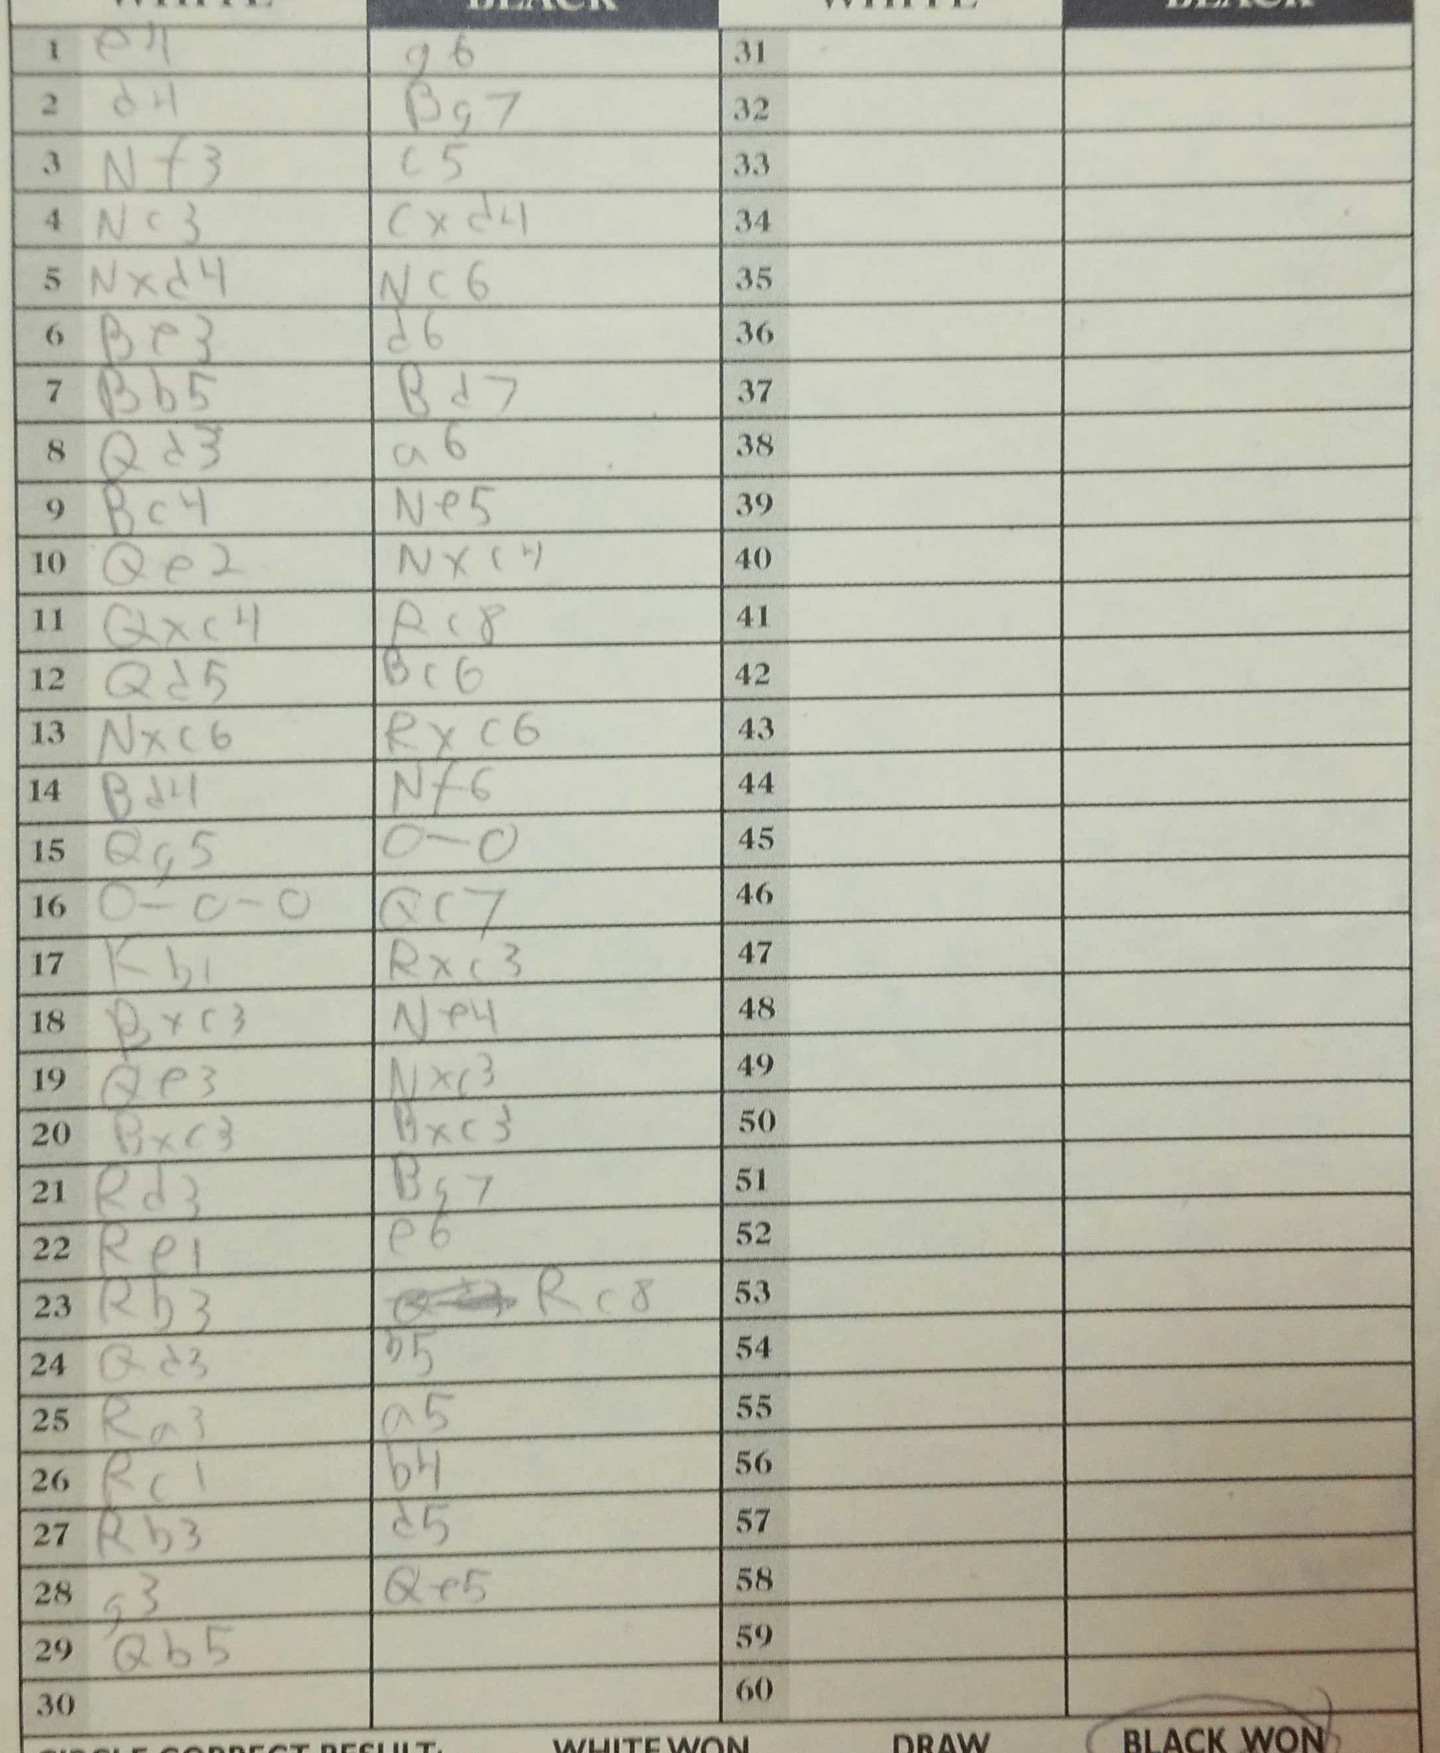 WHITE BLACK WHITE BLACK
1 e4 g6 31
2 d4 Bg7 32
3 Nf3 c5 33
4 Nc3 cxd4 34
5 Nxd4 Nc6 35
6 Be3 d6 36
7 Bb5 Bd7 37
8 Qd3 a6 38
9 Bc4 Ne5 39
10 Qe2 Nxc4 40
11 Qxc4 Rc8 41
12 Qd5 Bc6 42
13 Nxc6 Rxc6 43
14 Bd4 Nf6 44
15 Qg5 0-0 45
16 0-0-0 Qc7 46
17 Kb1 Rxc3 47
18 Bxc3 Ne4 48
19 Qe3 Nxc3 49
20 Bxc3 Bxc3 50
21 Rd3 Bg7 51
22 Re1 e6 52
23 Rb3 Rc8 53
24 Qd3 b5 54
25 Ra3 a5 55
26 Rc1 b4 56
27 Rb3 d5 57
28 g3 Qe5 58
29 Qb5 59
30 60
CIRCLE CORRECT RESULT: WHITE WON DRAW BLACK WON